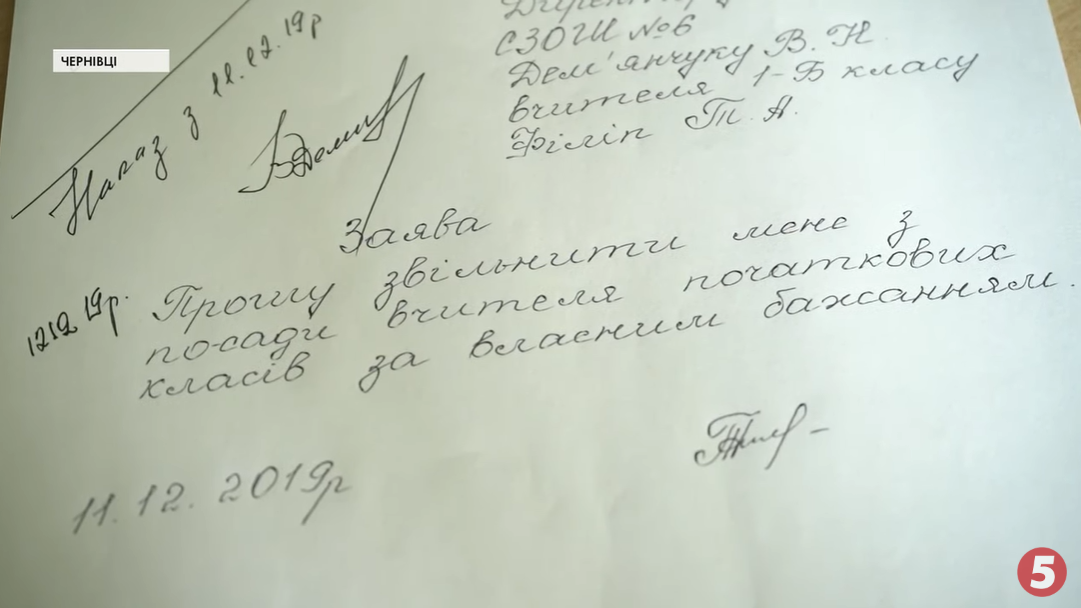 ЧЕРНІВЦІ
Наказ з 12.12.19р
Директору
СЗОШ №6
Дем'янчуку В. Н.
вчителя 1-Б класу
Філіп Т. А.
Заява
Прошу звільнити мене з
посади вчителя початкових
класів за власним бажанням.
1212 19р.
11. 12. 2019р
5